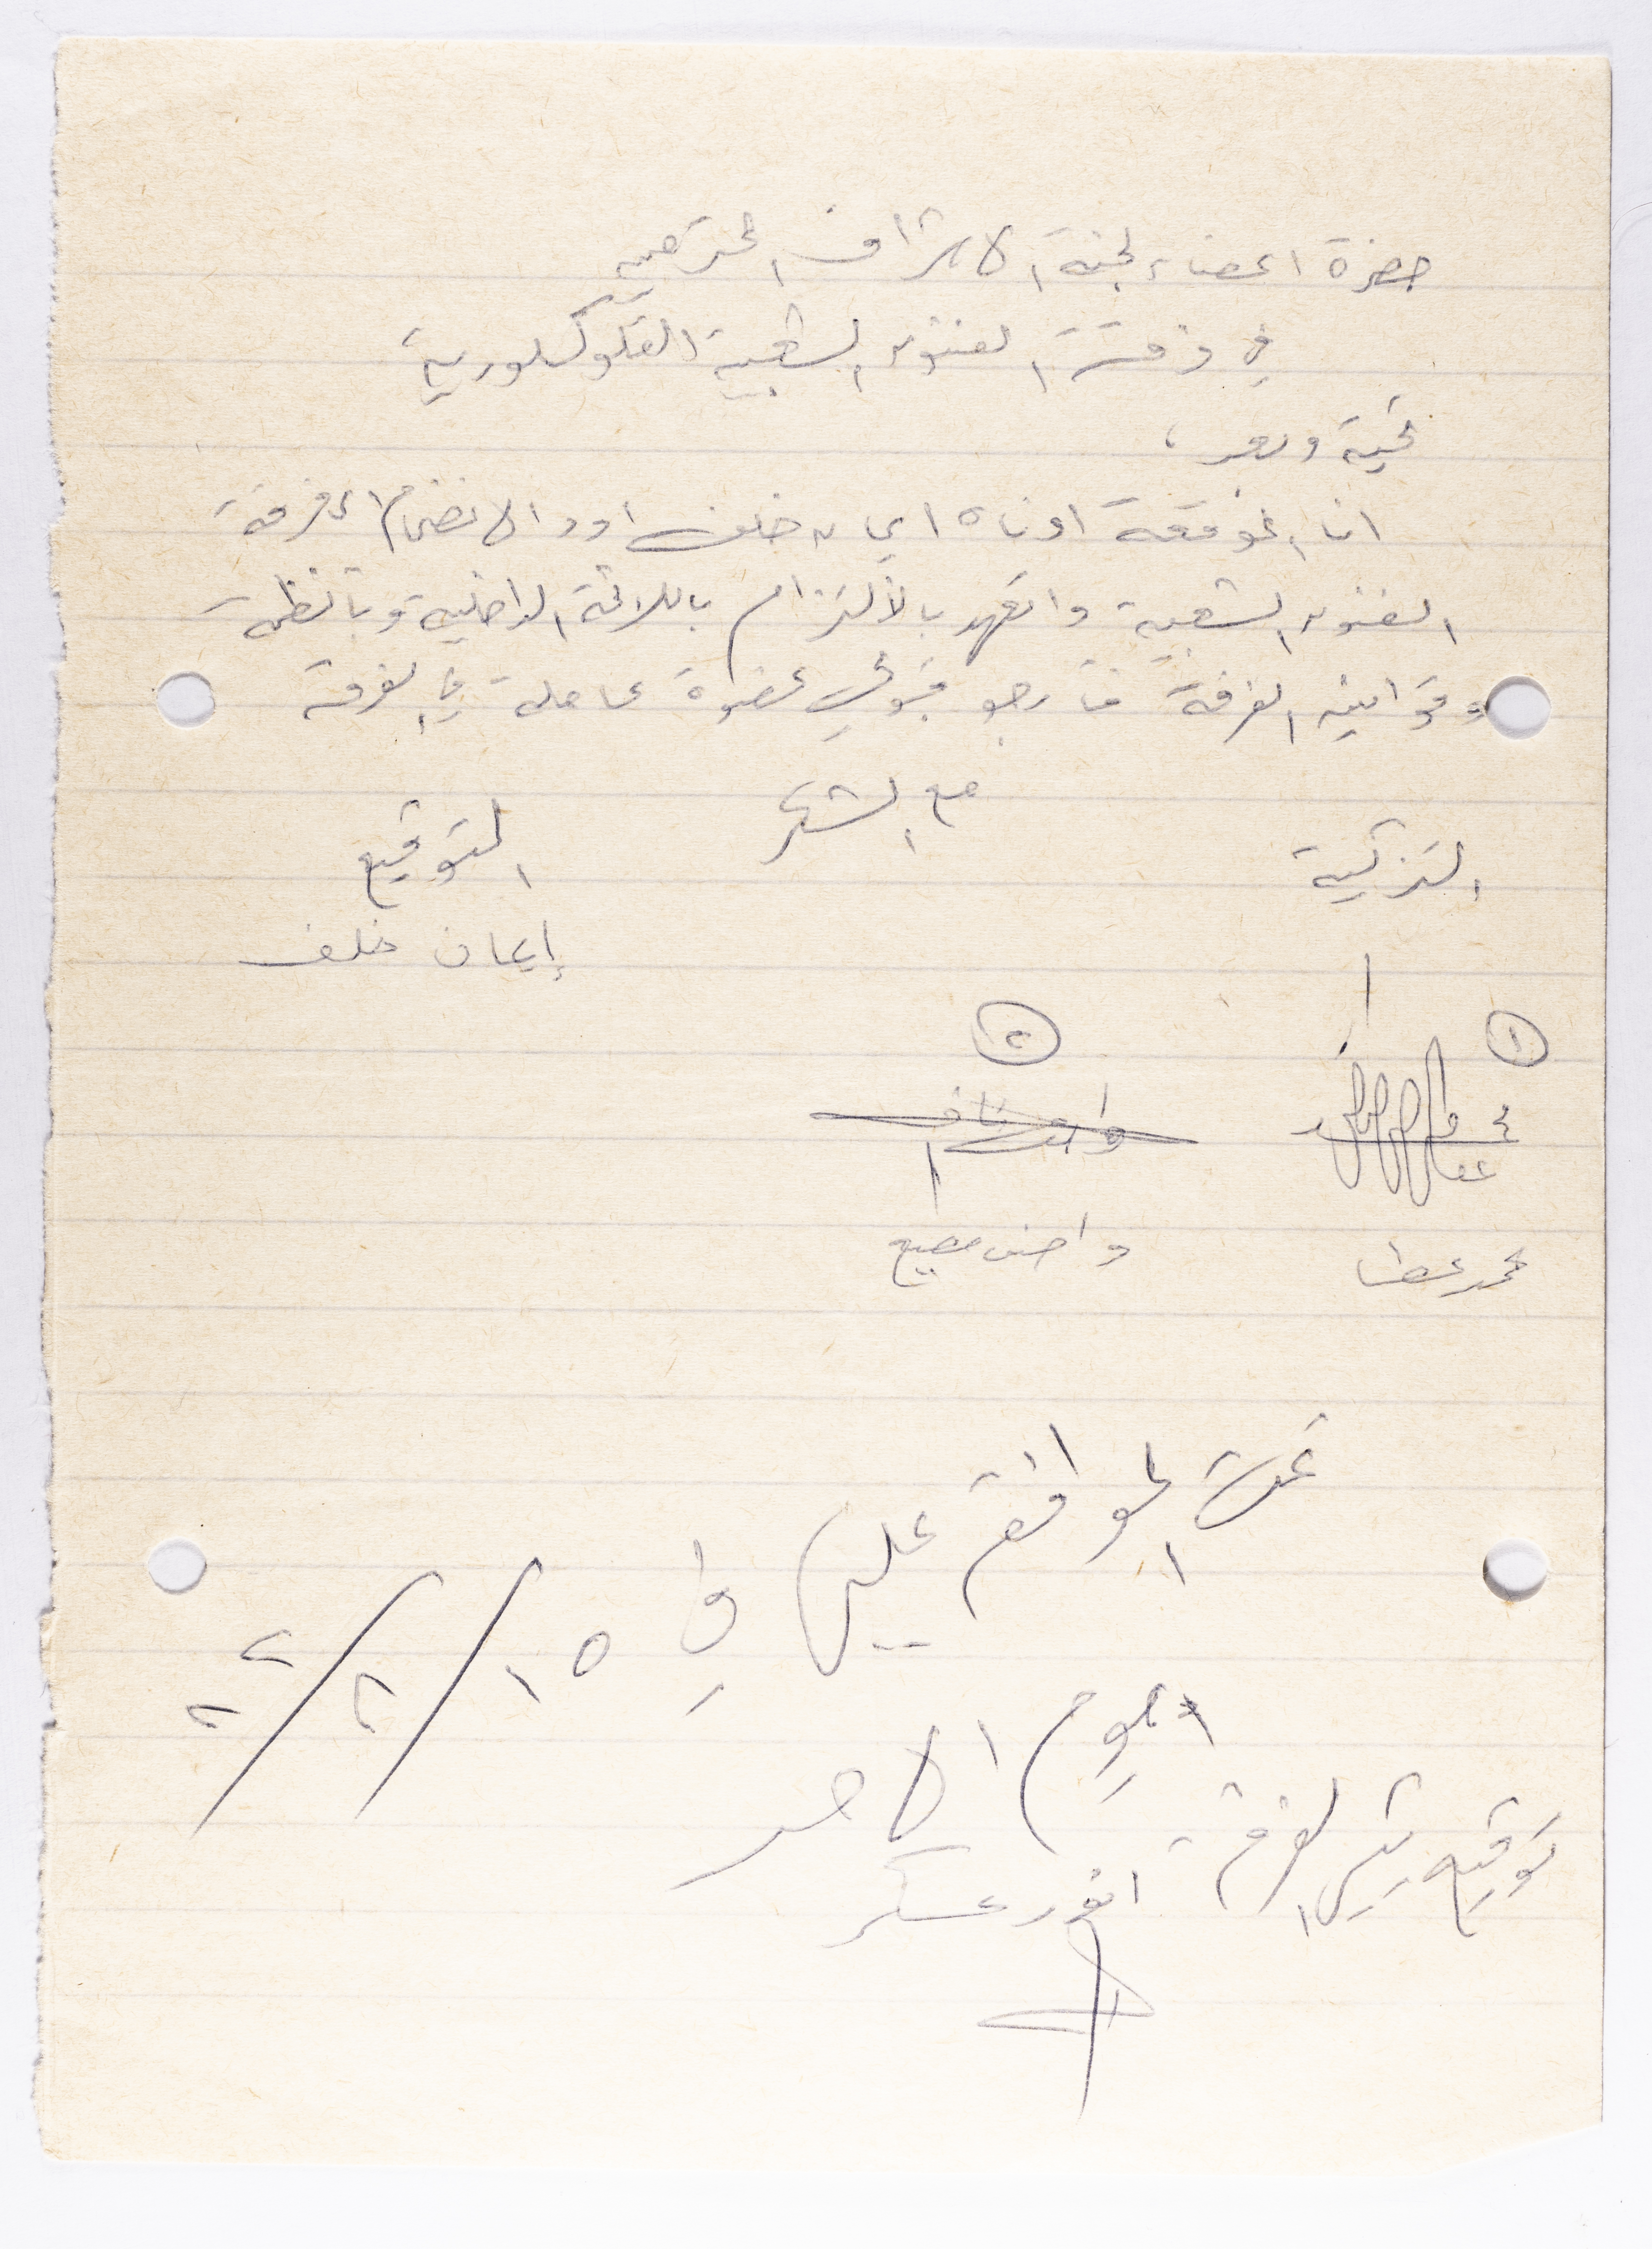 حضرة اعضاء لجنة الاشراف المحترمين
في فرقة الفنون الشعبية الفلوكلورية
تحية وبعد،
انا الموقعة ادناه ايمان خلف اود الانضمام الى فرقة
الفنون الشعبية واتعهد بالألتزام باللائحة الداخلية وبانظمة
وقوانين الفرقة فارجو قبولي عضوة عاملة في الفرقة
مع الشكر
التزكية
التوقيع
إيمان خلف
١
٢
محمد عطا
واصف
تمت الموافقة عليها في ١٥/٢/
اليوم الاحد
توقيع الفرقة
انور عسكر